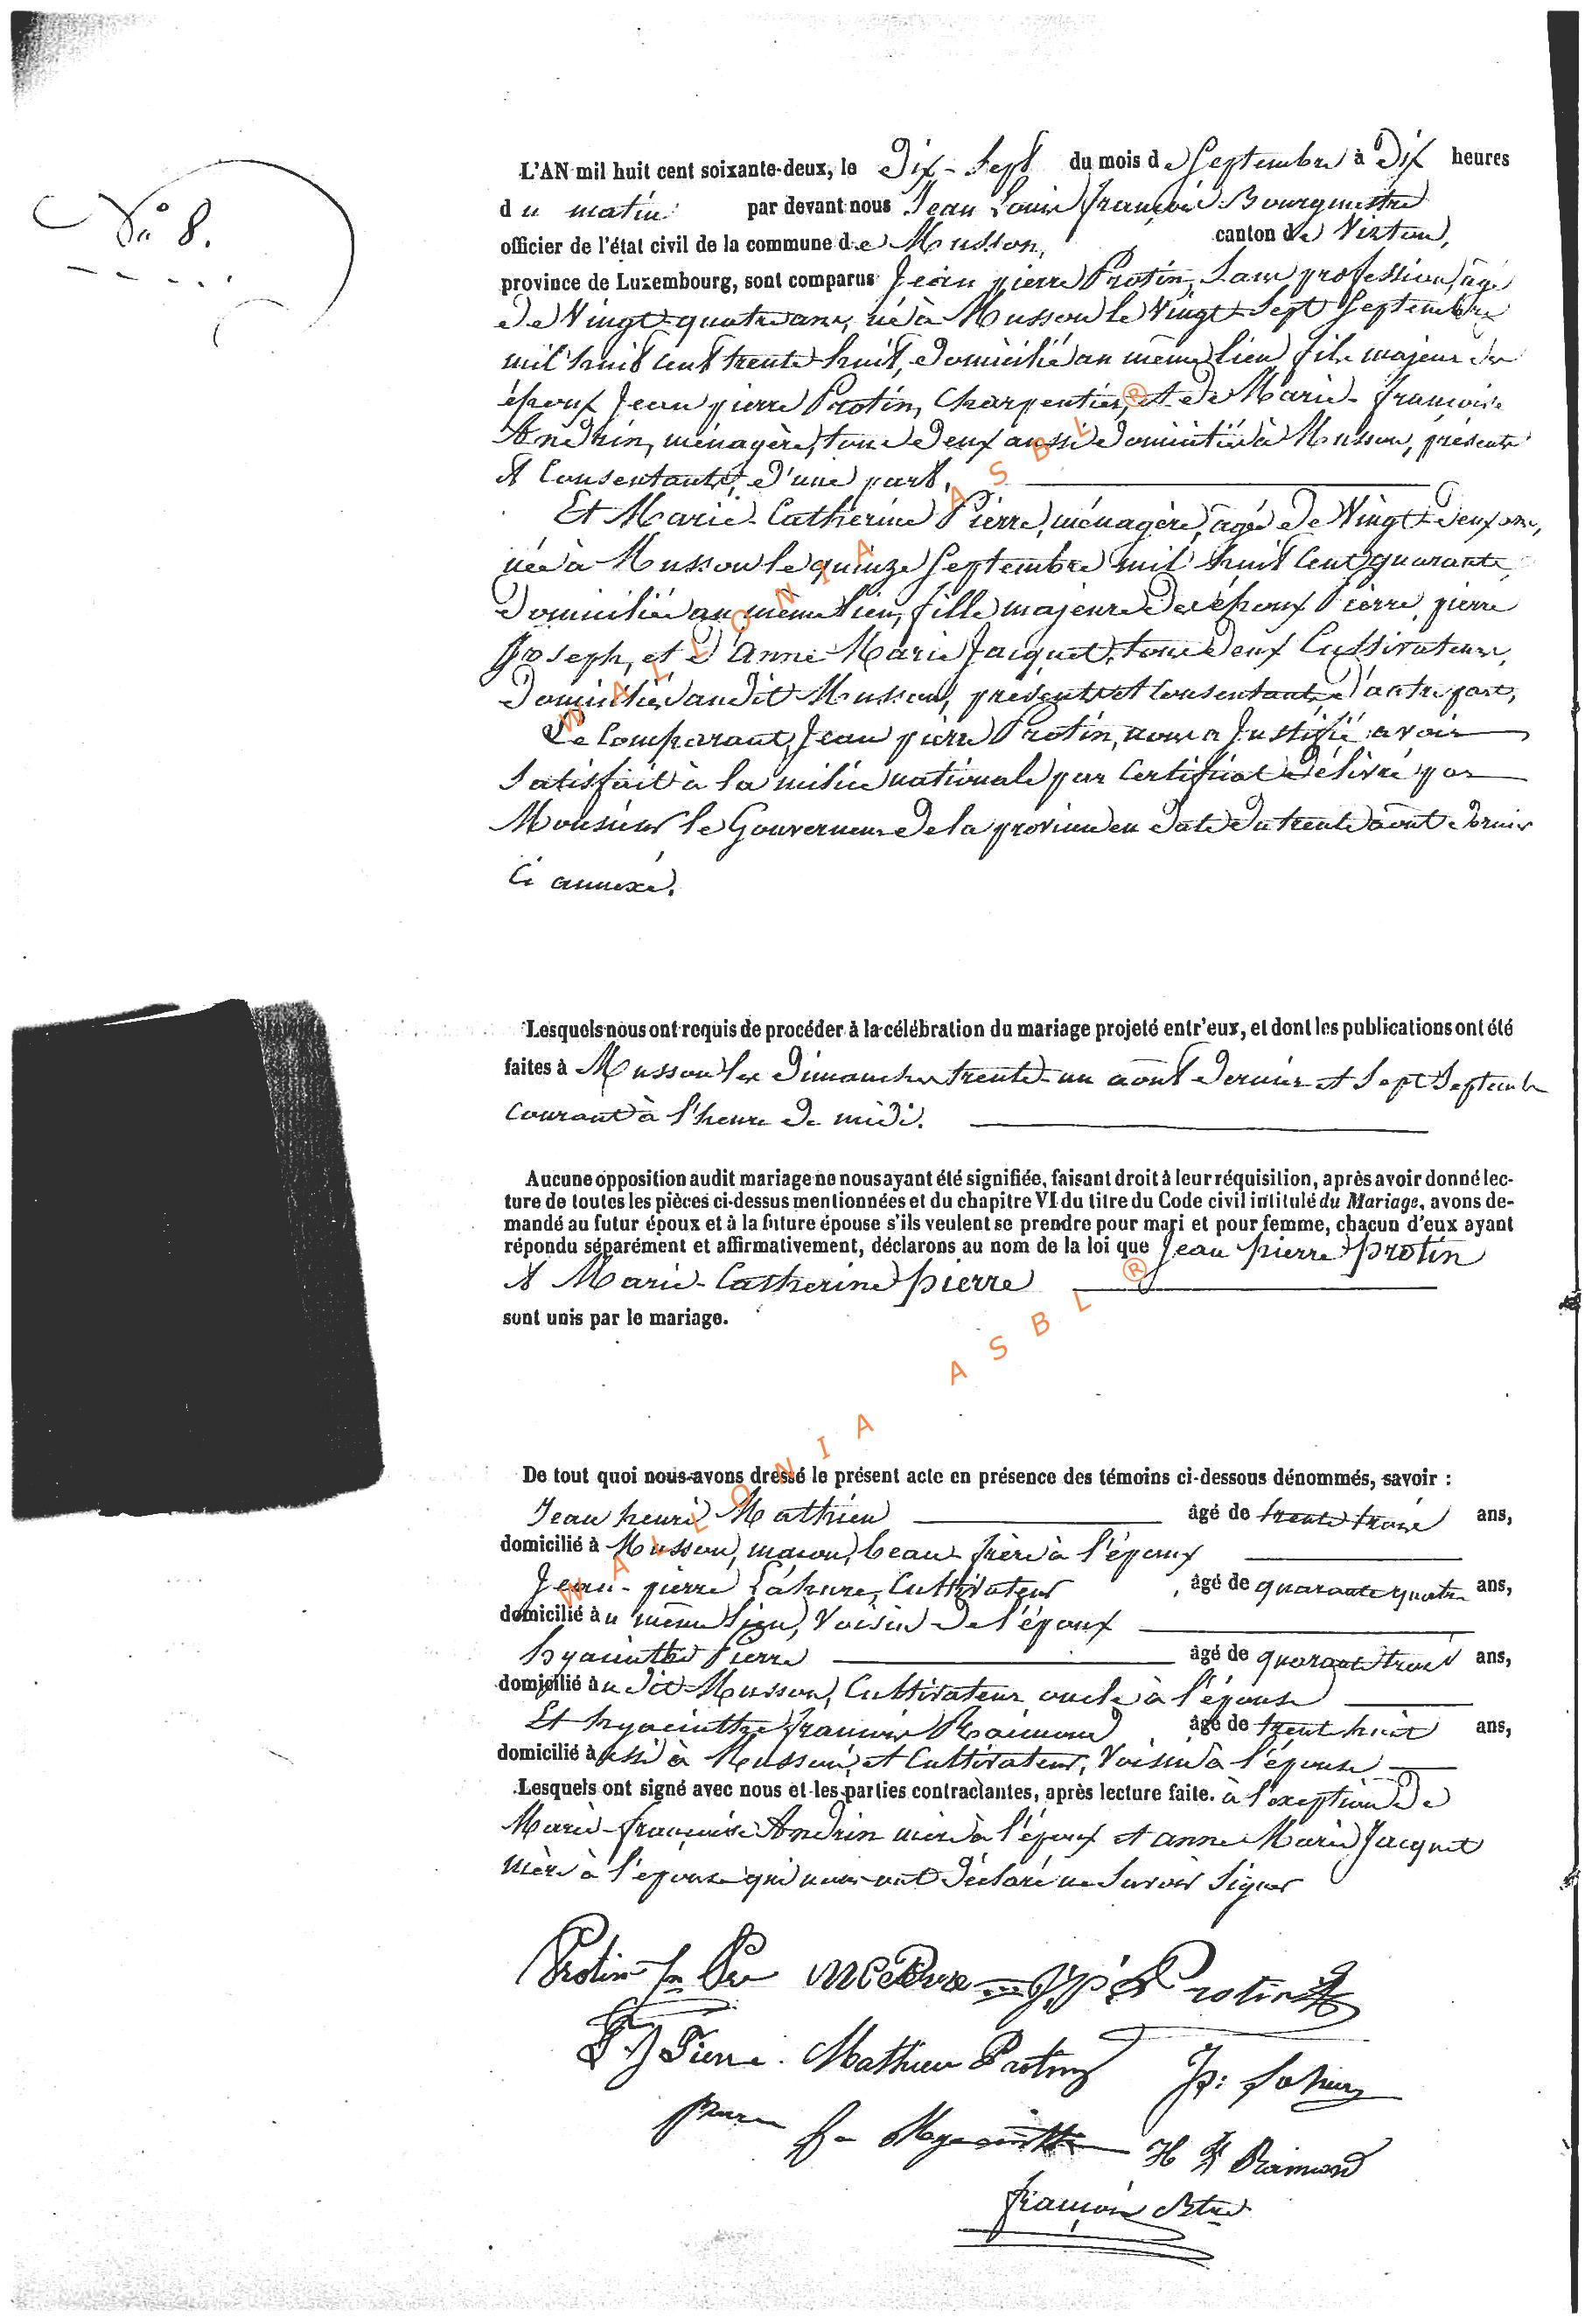 L'AN mil huit cent soixante-deux, le Dix-Sept du mois de Septembre à Dix heures
N° 8.
du matin par devant nous Jean Louis françois Bourgmestre
officier de l'état civil de la commune de Musson, canton de Virton,
province de Luxembourg, sont comparus Jean pierre Protin, Sans profession, âgé
de Vingt-quatre ans, né à Musson le Vingt-Sept Septembre
mil huit cent trente-huit, domicilié au même lieu, fils majeur des
époux Jean pierre Protin, Charpentier, et de Marie-françoise
Andrin, ménagère, tous deux aussi domiciliés à Musson, présents
et Consentants, d'une part.
Et Marie-Catherine Pierre, ménagère, âgée de Vingt-deux ans,
née à Musson le quinze Septembre mil huit Cent quarante,
Domiciliée au même lieu, fille majeure des époux Pierre, pierre
Joseph, et d'Anne-Marie Jacquet, tous deux Cultivateurs,
Domiciliés audit Musson, présents et Consentants, d'autre part,
Le Comparant, Jean pierre Protin, nous a Justifié avoir
Satisfait à la milice nationale par Certificat délivré par
Monsieur le Gouverneur de la province en date du trente août dernier
Ci annexé.
Lesquels nous ont requis de procéder à la célébration du mariage projeté entr'eux, et dont les publications ont été
faites à Musson les Dimanches trente-un août dernier et Sept Septembre
Courant à l'heure de midi.
Aucune opposition audit mariage ne nous ayant été signifiée, faisant droit à leur réquisition, après avoir donné lec-
ture de toutes les pièces ci-dessus mentionnées et du chapitre VI du titre du Code civil intitulé du Mariage, avons de-
mandé au futur époux et à la future épouse s'ils veulent se prendre pour mari et pour femme, chacun d'eux ayant
répondu séparément et affirmativement, déclarons au nom de la loi que Jean pierre protin
et Marie-Catherine pierre
sont unis par le mariage.
De tout quoi nous avons dressé le présent acte en présence des témoins ci-dessous dénommés, savoir :
Jean henri Mathieu âgé de trente trois ans,
domicilié à Musson, maçon, beau-frère à l'époux
Jean-pierre Lahure, Cultivateur, âgé de quarante quatre ans,
domicilié au même lieu, Voisin de l'époux
hyacinthe Pierre âgé de quarante trois ans,
domicilié audit Musson, Cultivateur oncle à l'épouse
Et hyacinthe françois Raimond âgé de trent huit ans,
domicilié aussi à Musson, et Cultivateur, Voisin à l'épouse
Lesquels ont signé avec nous et les parties contractantes, après lecture faite. à l'exception de
Marie-françoise Andrin mère à l'époux et anne Marie Jacquet
mère à l'épouse qui nous ont déclaré ne Savoir Signer
Protin MC Pierre J. P. Protin
P J Pierre. Mathieu Protin JP: Lahure
pierre hyacinthe H F Raimond
françois Btre
WALLONIA ASBL ®
WALLONIA ASBL ®